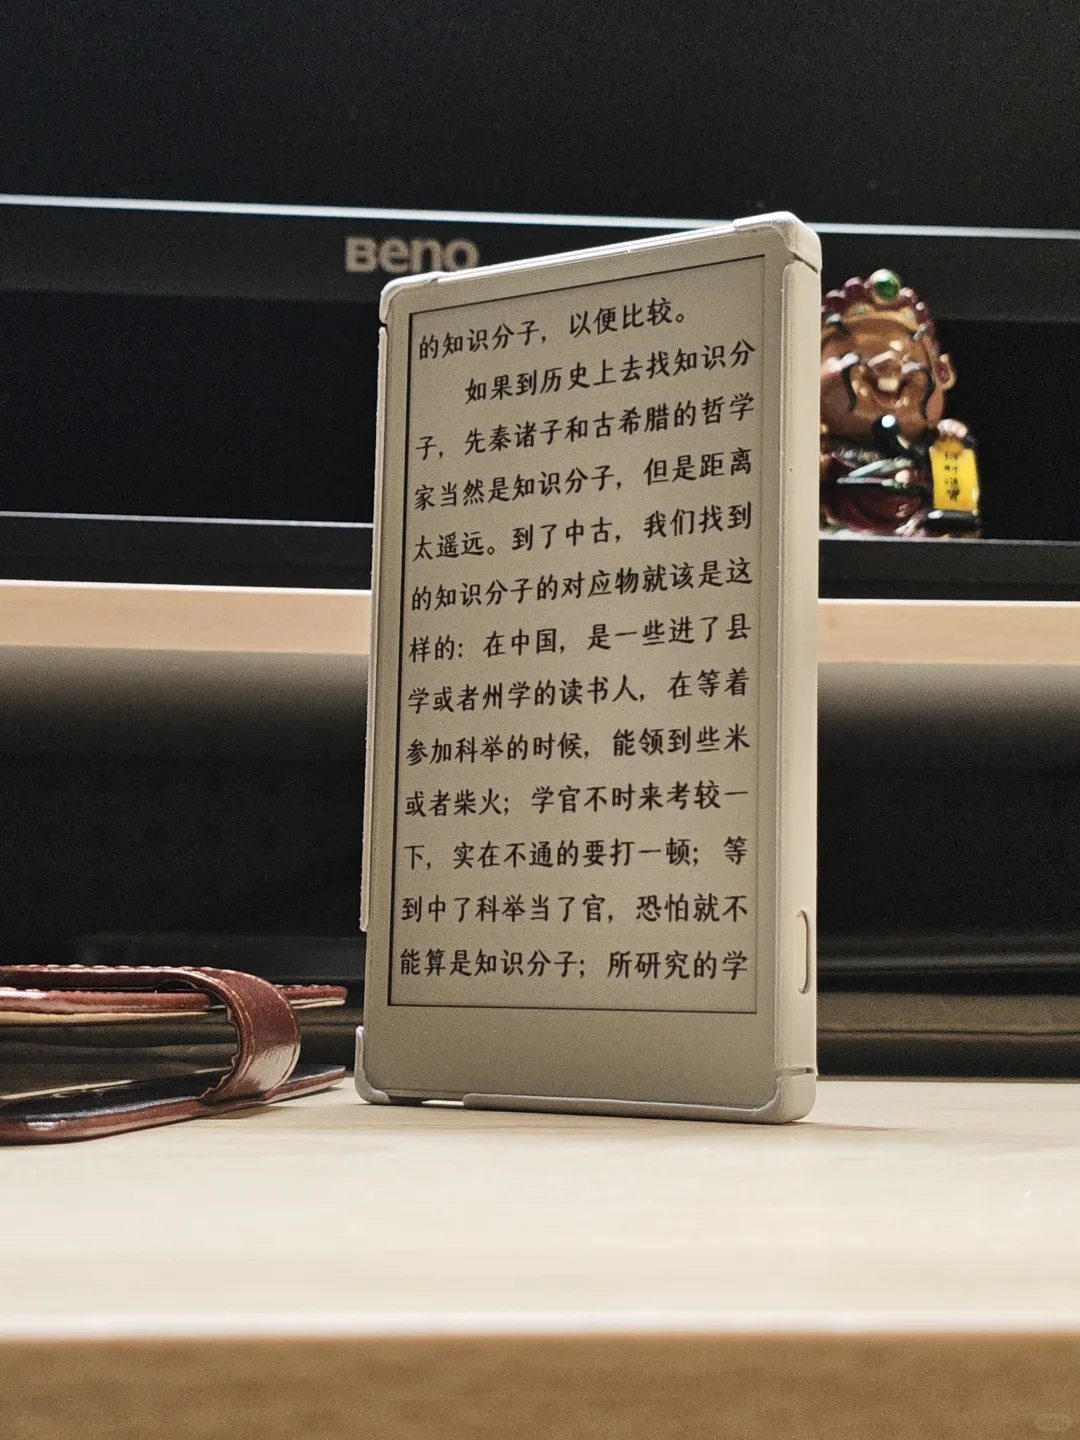 BenQ
的知识分子，以便比较。
如果到历史上去找知识分
子，先秦诸子和古希腊的哲学
家当然是知识分子，但是距离
太遥远。到了中古，我们找到
的知识分子的对应物就该是这
样的：在中国，是一些进了县
学或者州学的读书人，在等着
参加科举的时候，能领到些米
或者柴火；学官不时来考较一
下，实在不通的要打一顿；等
到中了科举当了官，恐怕就不
能算是知识分子；所研究的学